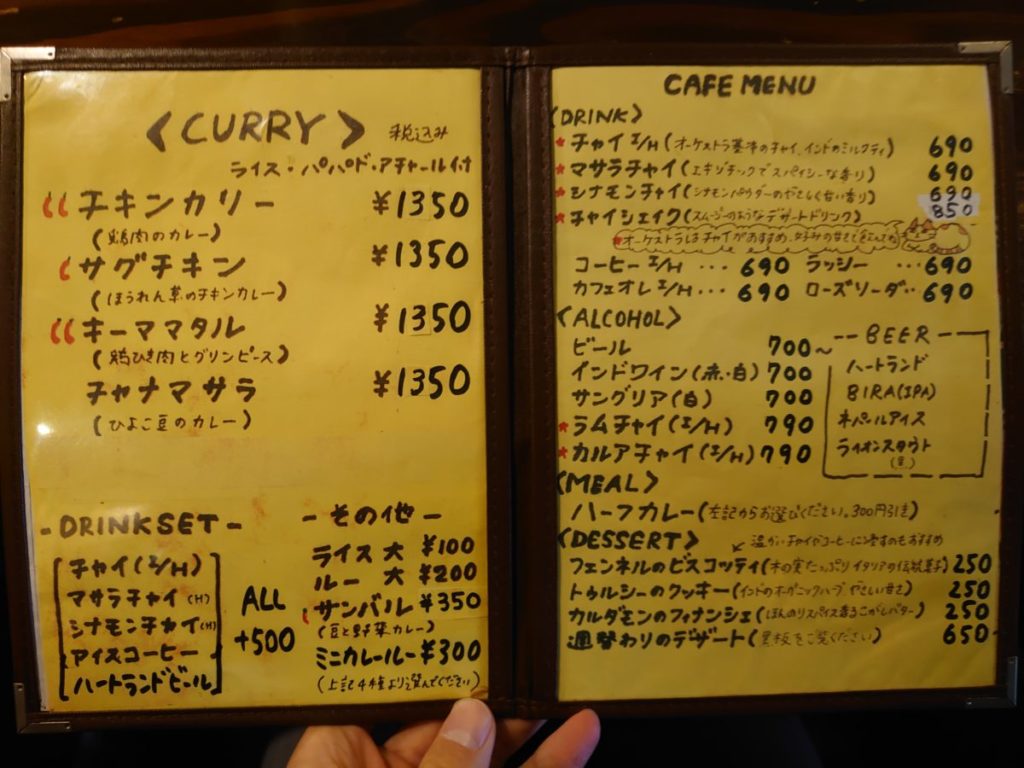 〈CURRY〉 税込み
ライス・パパド・アチャール付
チキンカリー ¥1350
(鶏肉のカレー)
サグチキン ¥1350
(ほうれん草のチキンカレー)
キーママタル ¥1350
(鶏ひき肉とグリンピース)
チャナマサラ ¥1350
(ひよこ豆のカレー)
-DRINK SET-
チャイ(I/H)
マサラチャイ(H)
シナモンチャイ(H)
アイスコーヒー
ハートランドビール
ALL
+500
-その他-
ライス 大 ¥100
ルー 大 ¥200
サンバル ¥350
(豆と野菜カレー)
ミニカレールー ¥300
(上記4種より選んでください)
CAFE MENU
〈DRINK〉
*チャイ I/H (オーケストラ基準のチャイ、インドのミルクティ) 690
*マサラチャイ(エキゾチックでスパイシーな香り) 690
*シナモンチャイ(シナモンパウダーのやさしく甘い香り) 690
*チャイシェイク(スムージーのようなデザートドリンク) 850
*オーケストラはチャイがおすすめ、好みの甘さで
コーヒー I/H ... 690 ラッシー ... 690
カフェオレ I/H ... 690 ローズソーダ .. 690
〈ALCOHOL〉
ビール 700~
インドワイン(赤・白) 700
サングリア(白) 700
*ラムチャイ(I/H) 790
*カルアチャイ(I/H) 790
-- BEER --
ハートランド
BIRA(IPA)
ネパールアイス
ライオンスタウト
(黒)
〈MEAL〉
ハーフカレー(左記からお選びください。300円引き)
〈DESSERT〉 ↙温かいチャイやコーヒーに浸すのもおすすめ
フェンネルのビスコッティ(木の実たっぷりイタリアの伝統菓子) 250
トゥルシーのクッキー(インドのオーガニックハーブ、やさしい甘さ) 250
カルダモンのフィナンシェ(ほんのりスパイス香るこがしバター) 250
週替わりのデザート(黒板をご覧ください) 650